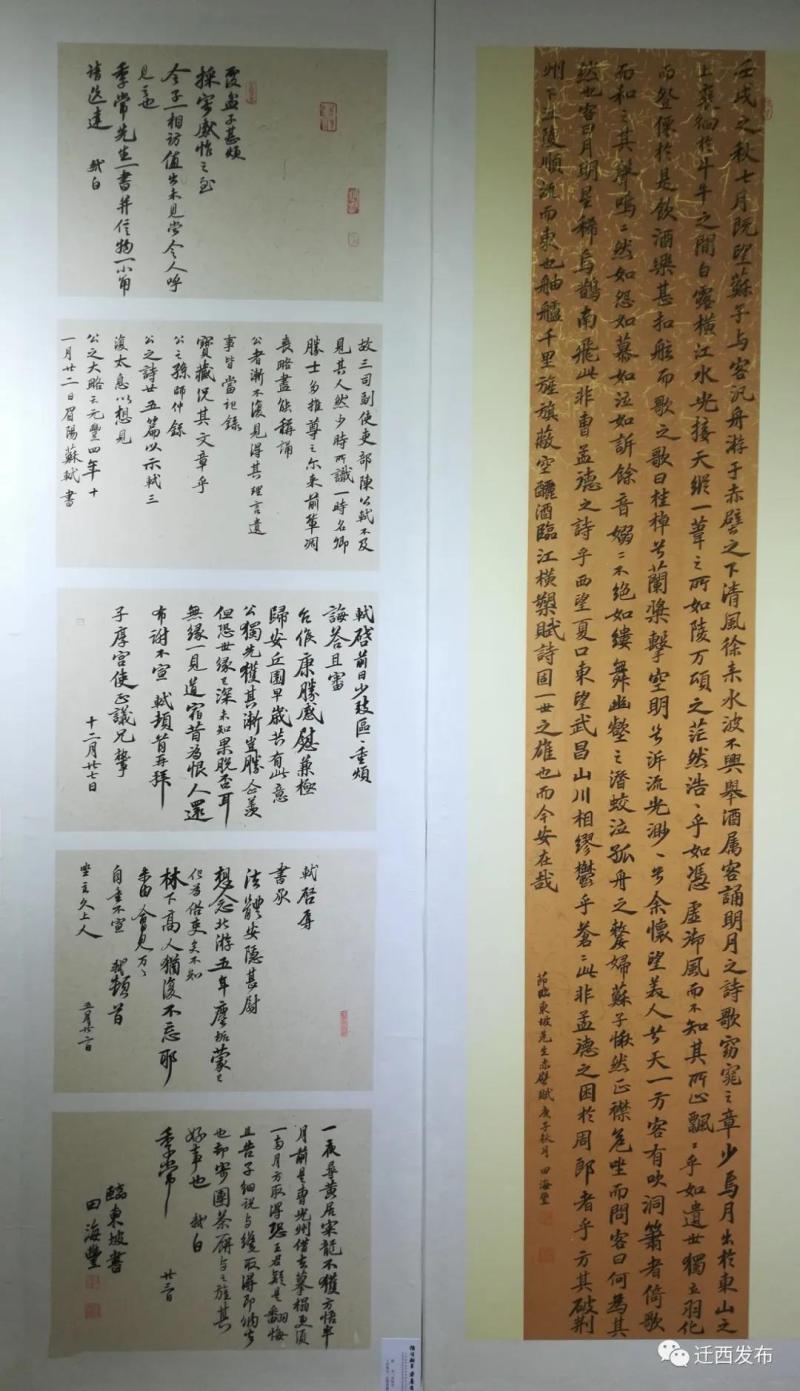 壬戌之秋七月既望蘇子与客汎舟游于赤壁之下清風徐来水波不興舉酒属客誦明月之詩歌窈窕之章少焉月出於東山之
上裵佪於斗牛之間白露橫江水光接天縱一葦之所如陵万頃之茫然浩〻乎如馮虛御風而不知其所止飄〻乎如遺世獨立羽化
而登僊於是飲酒樂甚扣舷而歌之歌曰桂棹兮蘭槳擊空明兮泝流光渺〻兮余懷望美人兮天一方客有吹洞簫者倚歌
而和之其聲嗚〻然如怨如慕如泣如訴餘音嫋〻不絶如縷舞幽壑之潛蛟泣孤舟之嫠婦蘇子愀然正襟危坐而問客曰何為其
然也客曰月明星稀烏鵲南飛此非曹孟德之詩乎西望夏口東望武昌山川相繆鬱乎蒼〻此非孟德之困於周郎者乎方其破荆
州下江陵順流而東也舳艫千里旌旗蔽空釃酒臨江橫槊賦詩固一世之雄也而今安在哉
節臨東坡先生赤壁賦庚子秋月田海豐
覆盆子甚煩
採寄感怍之至
令子一相訪值出未見當令人呼
見之也
季常先生一書并信物一小角
請送達 軾白
故三司副使吏部陳公軾不及
見其人然少時所識一時名卿
勝士多推尊之尔来前輩凋
喪略盡能稱誦
公者漸不復見得其理言遺
事皆當記錄
寶藏況其文章乎
公之孫師仲錄
公之詩廿五篇以示軾三
復太息以想見
公之大略云元豐四年十
一月廿二日眉陽蘇軾書
軾啓前日少致區〻重煩
誨荅且審
台候康勝感慰兼極
歸安丘園早歲共有此意
公獨先獲其漸豈勝企羨
但恐世緣已深未知果脫否耳
無緣一見道宿昔為恨人還
布謝不宣 軾頓首再拜
子厚宮使正議兄執事
十二月廿七日
軾啓辱
書承
法體安隱甚慰
想念北游五年塵垢蒙已
化為俗吏矣不知
林下高人猶復不忘耶
未由會見万〻
自重不宣 軾頓首
坐主久上人
五月廿二日
一夜尋黃居寀龍不獲方悟半
月前是曹光州借去摹榻更須
一兩月方取得恐王君疑是翻悔
且告子細説与纔取得即納去
也却寄團茶一餅与之旌其
好事也 軾白
季常 廿三日
臨東坡書
田海豐
迁西发布